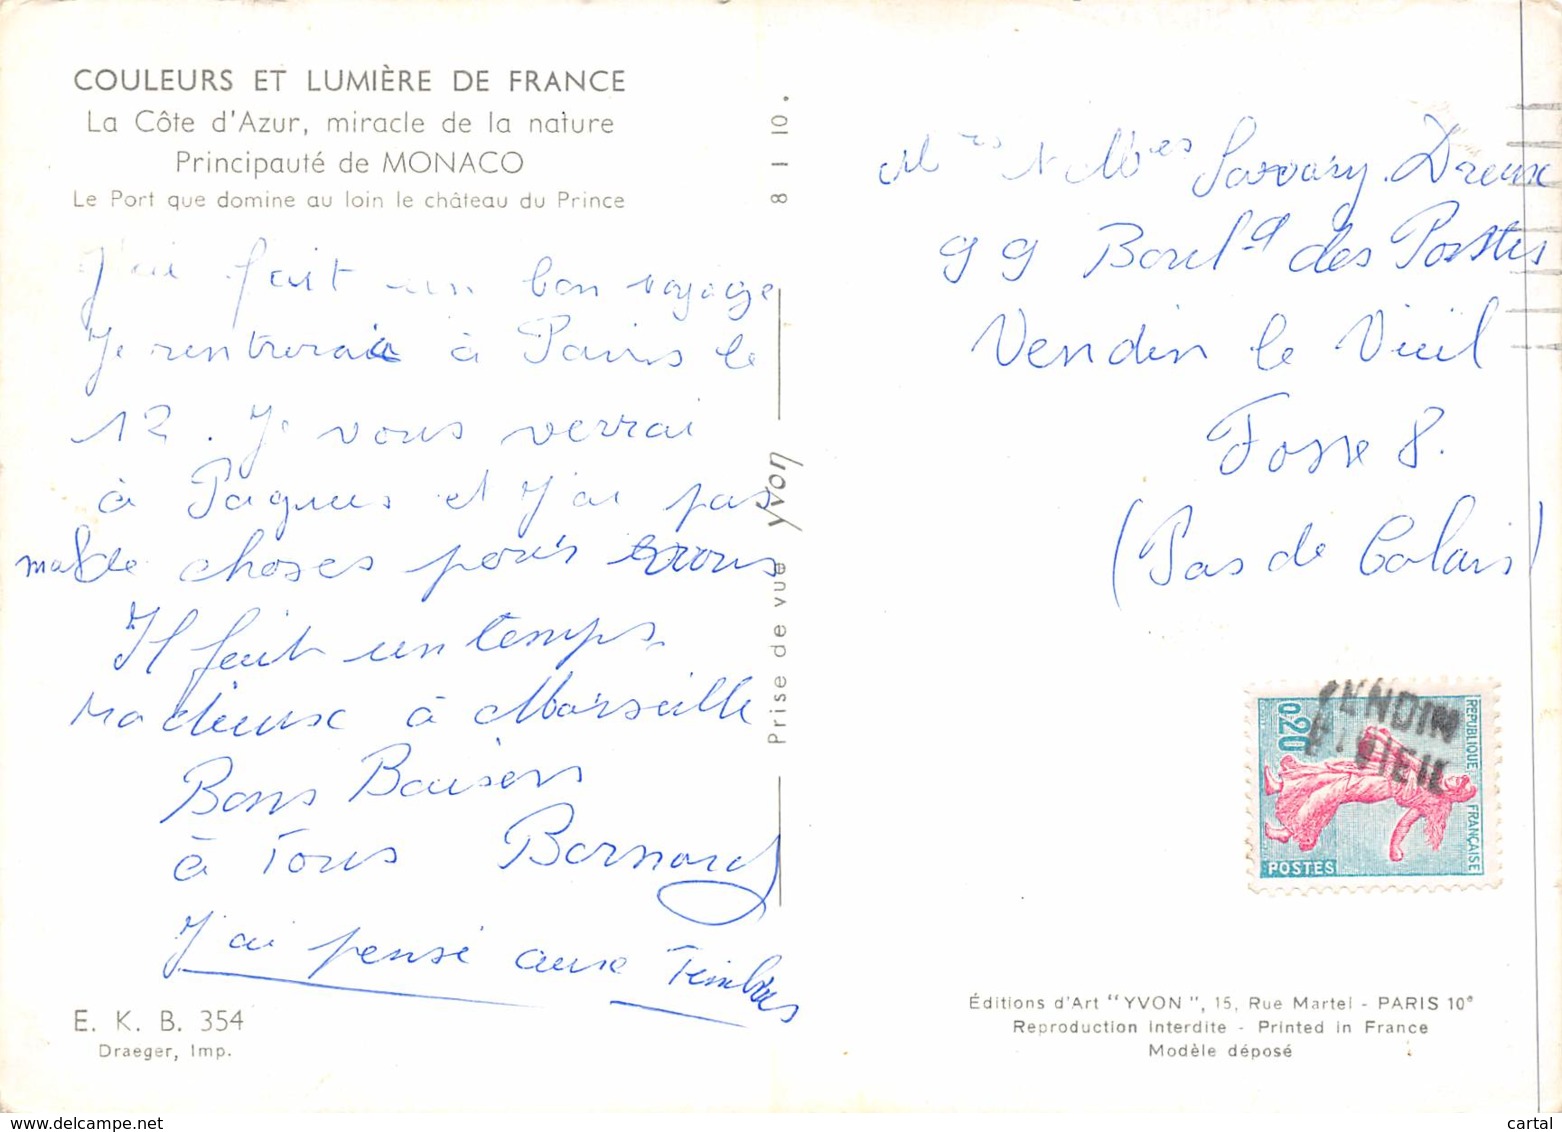 COULEURS ET LUMIÈRE DE FRANCE
La Côte d'Azur, miracle de la nature
Principauté de MONACO
Le Port que domine au loin le château du Prince
J'ai fait un bon voyage
Je rentrerai à Paris le
12. Je vous verrai
à Paques et J'ai pas
mal de choses pour vous
Il fait un temps
radieux à Marseille
Bons Baisers
à Tous Bernard
J'ai pensé aux Timbres
E. K. B. 354
Draeger, Imp.
8 1 10.
Prise de vue yvon
Mrs & Mmes Savary. Dreux
99 Boul-d des Postes
Vendin le Vieil
Fosse 8.
(Pas de Calais)
VENDIN
VIEIL
REPUBLIQUE FRANÇAISE
0,20
POSTES
Éditions d'Art "YVON", 15, Rue Martel - PARIS 10e
Reproduction Interdite - Printed in France
Modèle déposé
delcampe.net
cartal